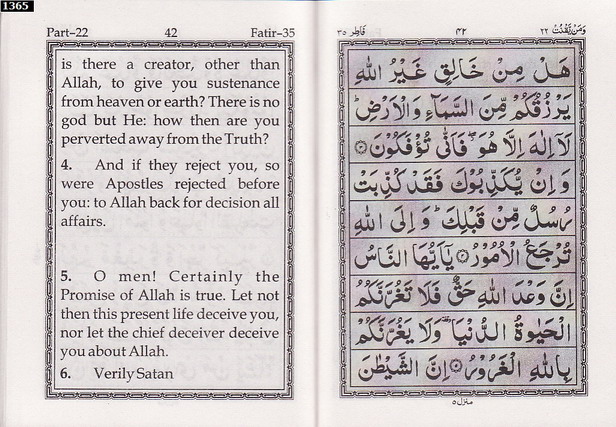 1365
Part-22 42 Fatir-35
is there a creator, other than
Allah, to give you sustenance
from heaven or earth? There is no
god but He: how then are you
perverted away from the Truth?
4. And if they reject you, so
were Apostles rejected before
you: to Allah back for decision all
affairs.
5. O men! Certainly the
Promise of Allah is true. Let not
then this present life deceive you,
nor let the chief deceiver deceive
you about Allah.
6. Verily Satan
وَمَنْ يَّقْنُتْ ٢٢ ٤٢ فَاطِر ٣٥
هَلْ مِنْ خَالِقٍ غَيْرُ اللّٰهِ
يَرْزُقُكُمْ مِّنَ السَّمَآءِ وَالْاَرْضِ ؕ
لَاۤ اِلٰهَ اِلَّا هُوَ ۖ فَاَنّٰى تُؤْفَكُوْنَ ۝٣
وَاِنْ يُّكَذِّبُوْكَ فَقَدْ كُذِّبَتْ
رُسُلٌ مِّنْ قَبْلِكَ ؕ وَاِلَى اللّٰهِ
تُرْجَعُ الْاُمُوْرُ ۝٤ يٰۤاَيُّهَا النَّاسُ
اِنَّ وَعْدَ اللّٰهِ حَقٌّ فَلَا تَغُرَّنَّكُمُ
الْحَيٰوةُ الدُّنْيَا ۥ وَلَا يَغُرَّنَّكُمْ
بِاللّٰهِ الْغَرُوْرُ ۝٥ اِنَّ الشَّيْطٰنَ
منزل ٥